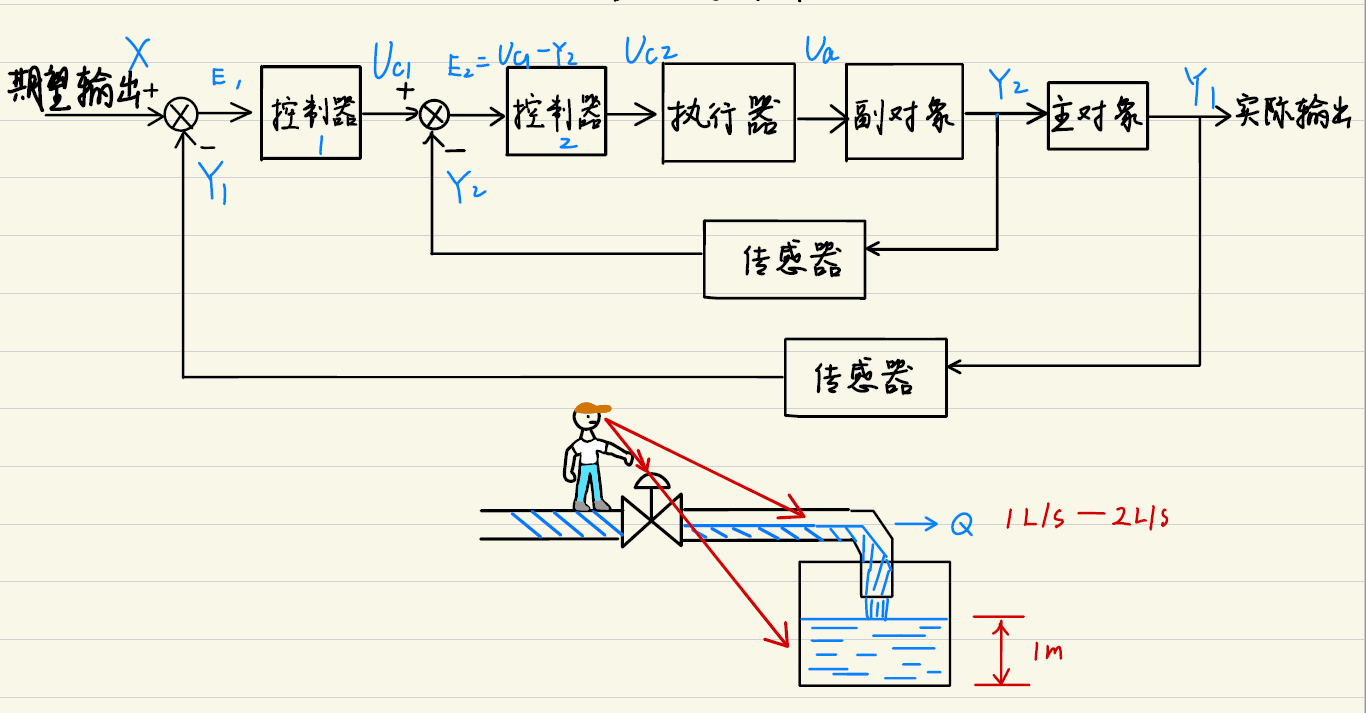 X
期望输出
+
E₁
控制器
1
Uc1
+
E₂=Uc1-Y₂
控制器
2
Uc2
执行器
Ua
副对象
Y₂
主对象
Y₁
实际输出
-
Y₁
-
Y₂
传感器
传感器
Q
1L/s-2L/s
1m